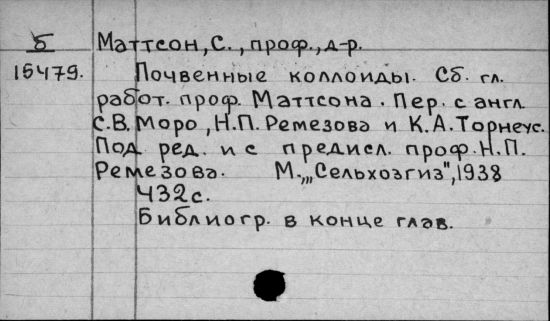 Б Маттсон, С., проф., д-р.
15479. Почвенные коллоиды. Сб. гл.
работ. проф. Маттсона. Пер. с англ.
С.В. Моро, Н.П. Ремезова и К.А. Торнеус.
Под ред. и с предисл. проф. Н.П.
Ремезова. М., „Сельхозгиз", 1938
432 с.
Библиогр. в конце глав.